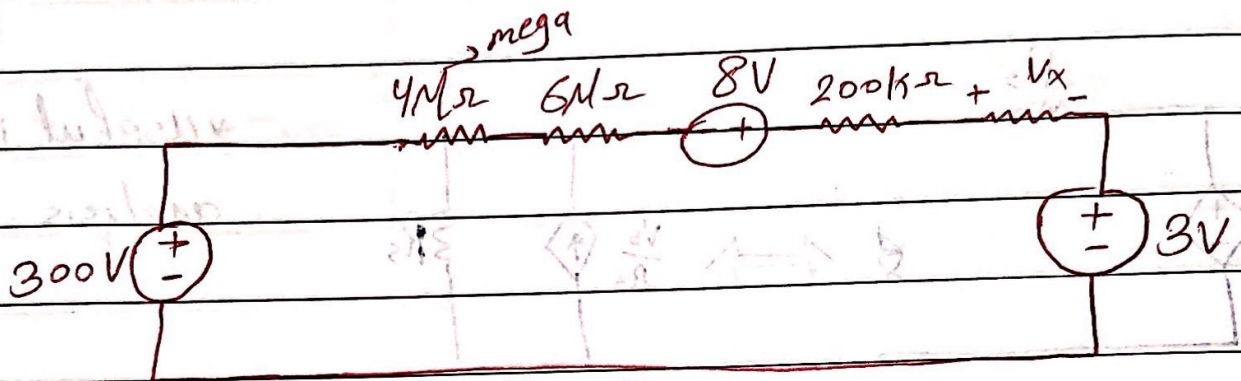 mega
4MΩ 6MΩ 8V 200KΩ + Vx -
- +
300V + - + - 3V